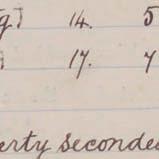 g] 14. 5
] 17. 7
erty seconded